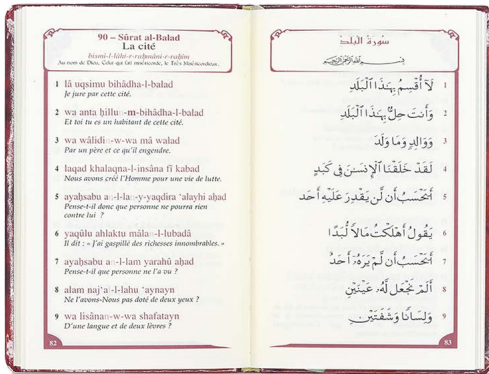 90 – Sûrat al-Balad
La cité
bismi-l-lâhi-r-raḥmâni-r-raḥîm
Au nom de Dieu, Celui qui fait miséricorde, le Très Miséricordieux.
1 lâ uqsimu bihâdha-l-balad
Je jure par cette cité.
2 wa anta ḥillun-m-bihâdha-l-balad
Et toi tu es un habitant de cette cité.
3 wa wâlidin-w-wa mâ walad
Par un père et ce qu'il engendre.
4 laqad khalaqna-l-insâna fî kabad
Nous avons créé l'Homme pour une vie de lutte.
5 ayaḥsabu an-l-lan-y-yaqdira 'alayhi aḥad
Pense-t-il donc que personne ne pourra rien
contre lui ?
6 yaqûlu ahlaktu mâlan-l-lubadâ
Il dit : « J'ai gaspillé des richesses innombrables. »
7 ayaḥsabu an-l-lam yarahû aḥad
Pense-t-il que personne ne l'a vu ?
8 alam naj'al-l-lahu 'aynayn
Ne l'avons-Nous pas doté de deux yeux ?
9 wa lisânan-w-wa shafatayn
D'une langue et de deux lèvres ?
82
سورة البلد
بِسْمِ اللَّهِ الرَّحْمَٰنِ الرَّحِيمِ
لَآ أُقْسِمُ بِهَٰذَا ٱلْبَلَدِ 1
وَأَنتَ حِلٌّۢ بِهَٰذَا ٱلْبَلَدِ 2
وَوَالِدٍ وَمَا وَلَدَ 3
لَقَدْ خَلَقْنَا ٱلْإِنسَٰنَ فِى كَبَدٍ 4
أَيَحْسَبُ أَن لَّن يَقْدِرَ عَلَيْهِ أَحَدٌ 5
يَقُولُ أَهْلَكْتُ مَالًا لُّبَدًا 6
أَيَحْسَبُ أَن لَّمْ يَرَهُۥٓ أَحَدٌ 7
أَلَمْ نَجْعَل لَّهُۥ عَيْنَيْنِ 8
وَلِسَانًا وَشَفَتَيْنِ 9
83